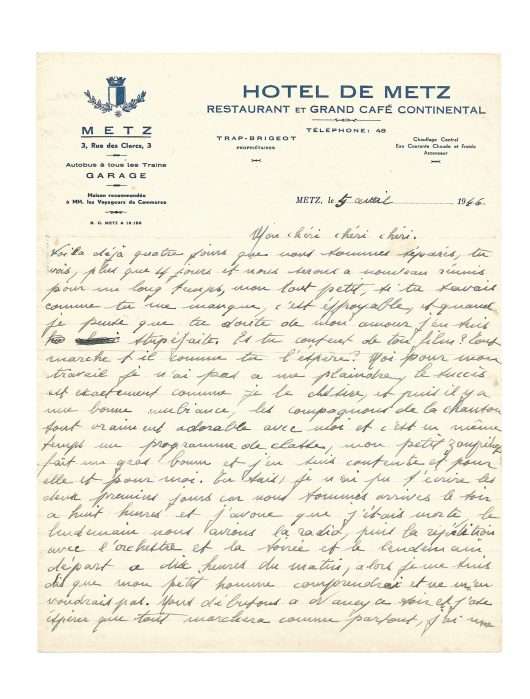 HOTEL DE METZ
RESTAURANT ET GRAND CAFÉ CONTINENTAL
TÉLÉPHONE: 48
METZ
3, Rue des Clercs, 3
Autobus à tous les Trains
GARAGE
Maison recommandée
à MM. les Voyageurs de Commerce
R. C. METZ A 10.180
TRAP-BRIGEOT
PROPRIÉTAIRES
Chauffage Central
Eau Courante Chaude et Froide
Ascenseur
METZ, le 5 avril 1946
Mon chéri chéri chéri.
Voila déjà quatre jours que nous sommes séparés, tu
vois, plus que 4 jours et nous serons a nouveau réunis
pour un long temps, mon tout petit, si tu savais
comme tu me manque, c'est éffroyable, et quand
je pense que tu doute de mon amour j'en suis
stupéfaite. Es tu content de ton film? tout
marche t il comme tu l'espère? Moi pour mon
travail je n'ai pas a me plaindre, le succès
est exactement comme je le désire, et puis il y a
une bonne ambiance, les compagnons de la chanson
sont vraiment adorable avec moi et c'est en même
temps un programme de classe, mon petit
fait un gros boum et j'en suis contente et pour
elle et pour moi. Tu sais, je n'ai pu t'écrire les
deux premiers jours car nous sommes arrivés le soir
a huit heures et j'avoue que j'étais morte le
lendemain nous avions la radio, puis la répétition
avec l'orchestre et la soirée et le lendemain
départ a dix heures du matin, alors je me suis
dis que mon petit homme comprendrai et ne m'en
voudrais pas. Nous débutons a Nancy ce soir et j'ose
espérer que tout marchera comme partout, j'ai une